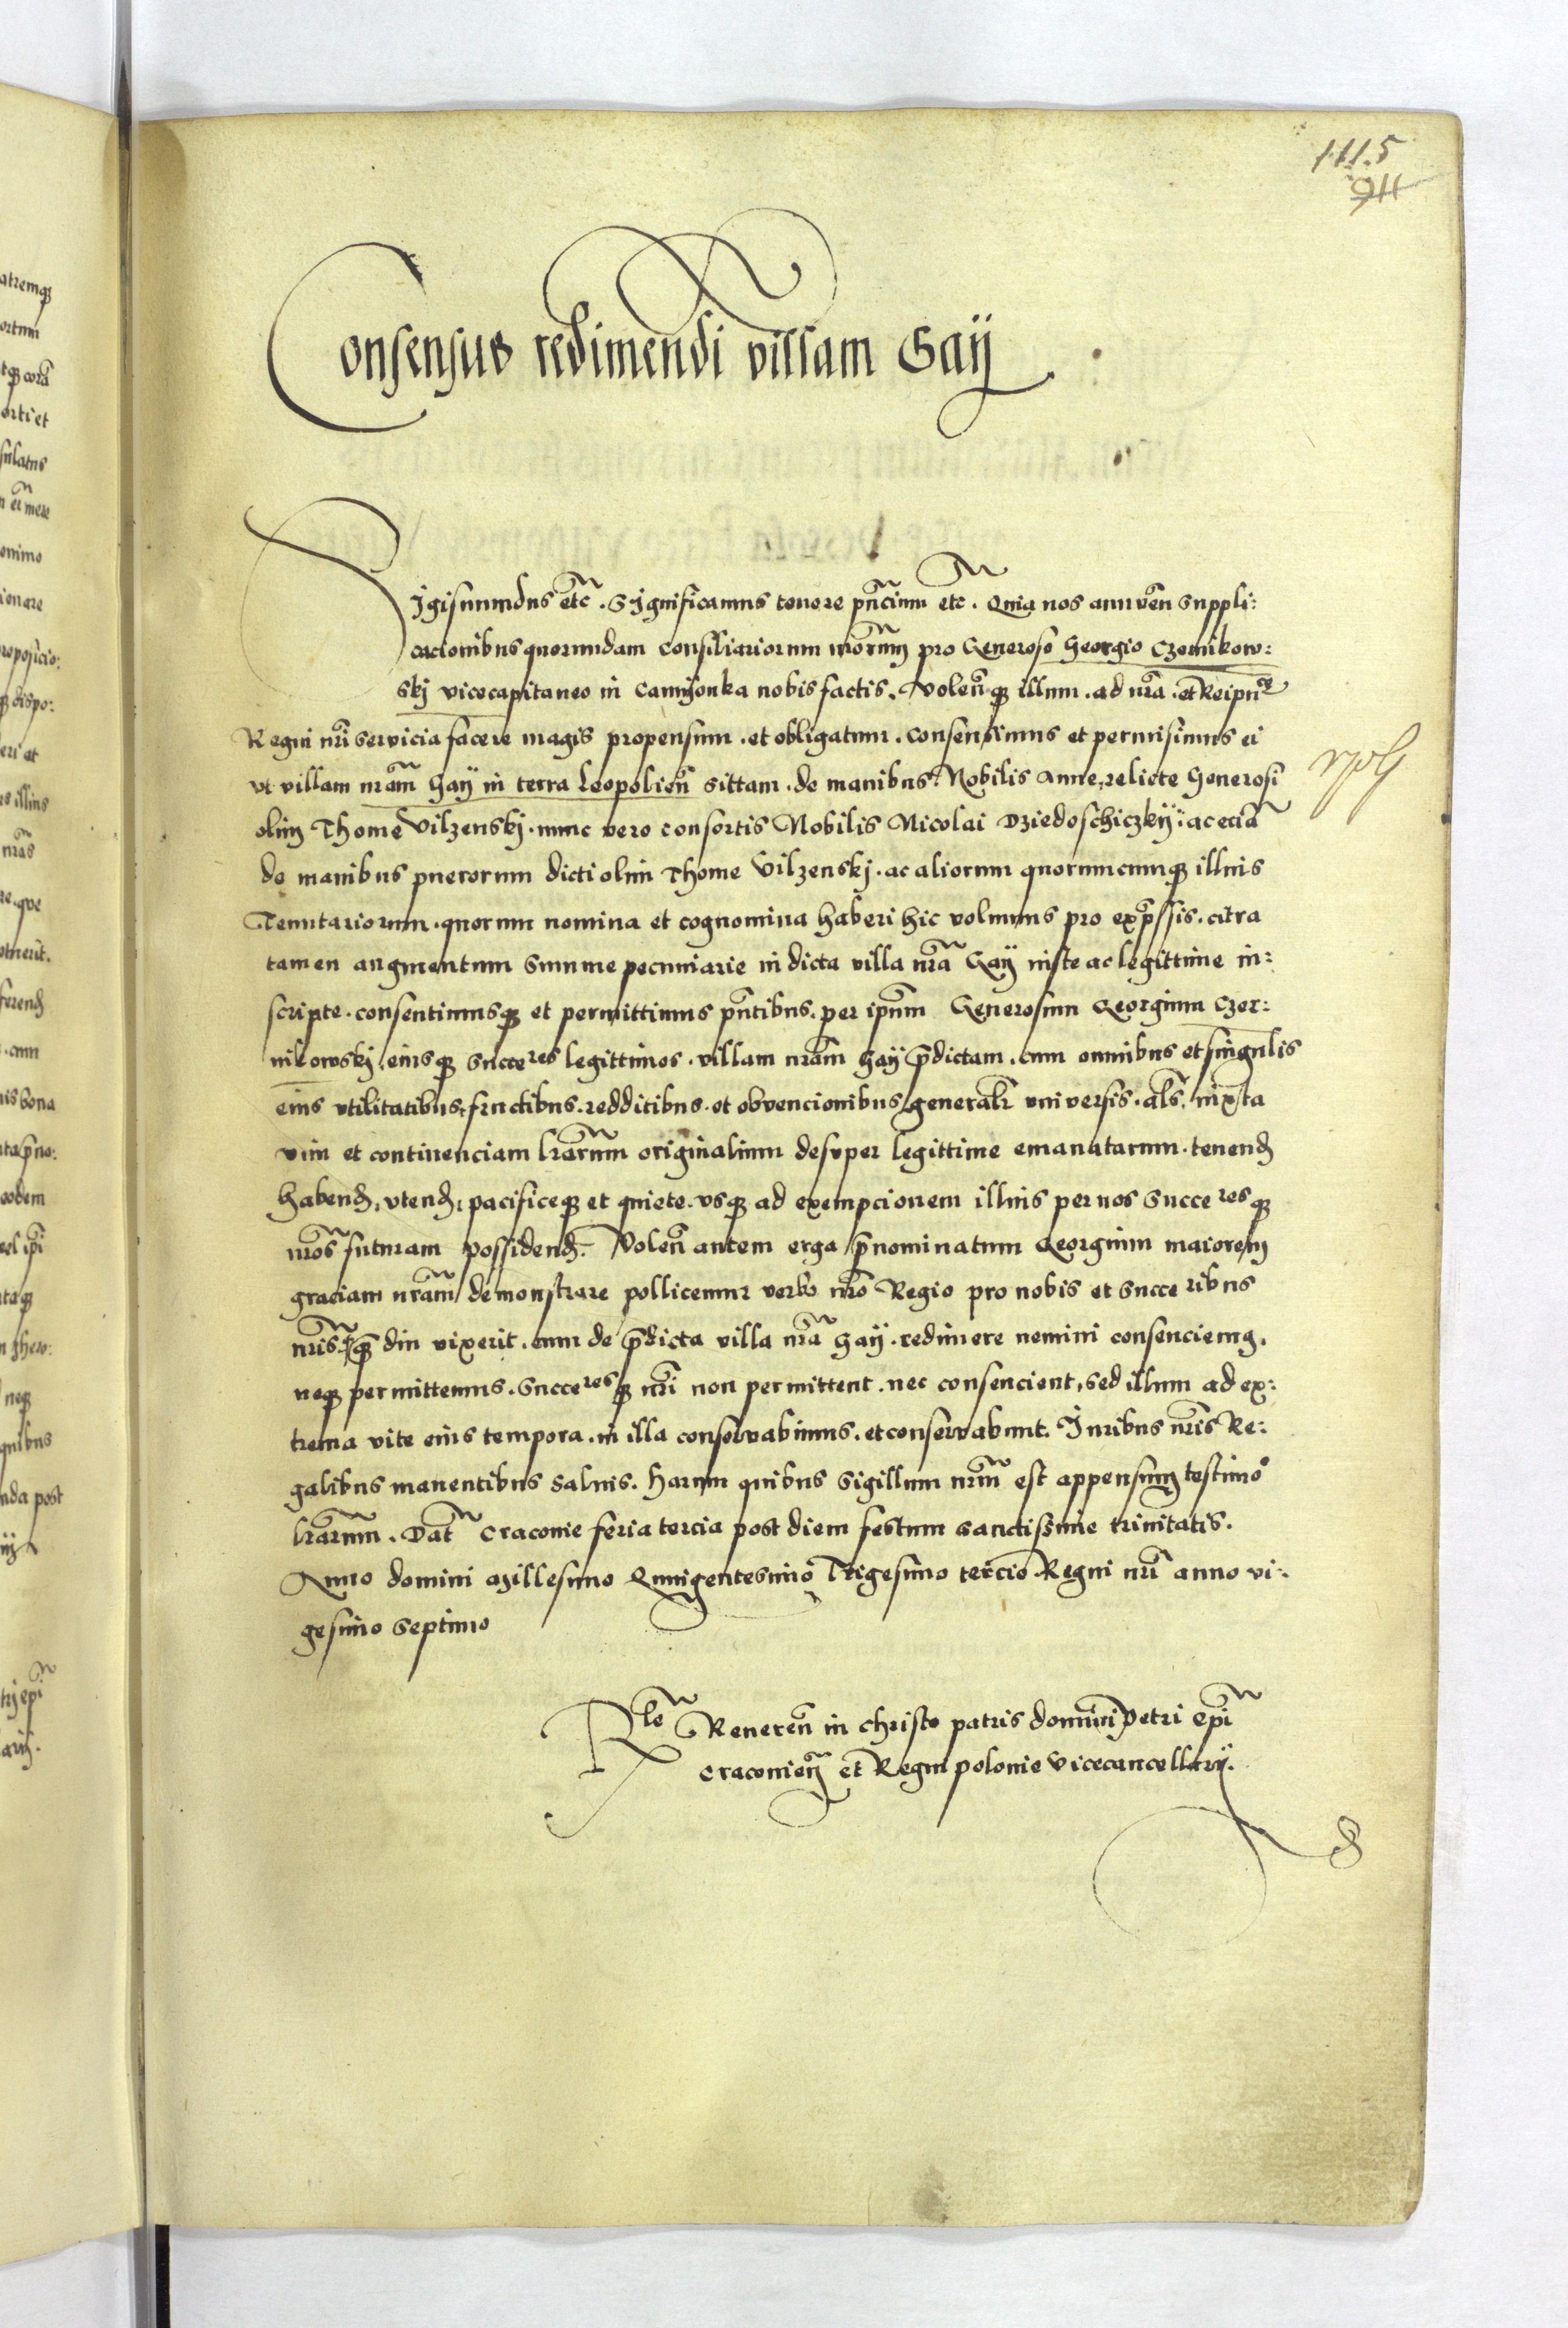 111.5
Consensus redimendi villam Gaij
Sigismundus etc. Significamus tenore pñcium etc. Quia nos annuen̄ suppli:
cacionibus quorundam consiliariorum nrorum pro Generoso Georgio Czernikow:
skj vicecapitaneo in Camyonka nobis factis. Volen̄q illum ad nrã et Reipuce
Regni nri servicia facere magis propensum et obligatum. consensimus et permisimus ei
ut villam nram Gaij in terra Leopolien̄ sittam de manibus Nobilis Anne relicte Generosi
olim Thome Vilzenskj nunc vero consortis Nobilis Nicolai Dziedoschiczkij: ac eciã
de manibus puerorum dicti olim Thome Vilzenskj. ac aliorum quorumcumq illius
Tenutariorum. quorum nomina et cognomina haberi hic volumus pro exp̃ssis. citra
tamen augmentum summe pecuniarie in dicta villa nrã Gaij iuste ac legittime in:
scripte. consentimusq et permittimus pñtibus. per ipsum Generosum Georgium Czer:
nikowskj eiusq succeres legittimos. villam nram Gaij p̃dictam. cum omnibus et singulis
eius utilitatibus, fructibus. redditibus. et obvencionibus generalr̃ universis. als̃ iuxta
vim et continenciam lrarum originalium desuper legittime emanatarum. tenend̄
habend̄, utend̄, pacificeq et quiete. usq ad exempcionem illius per nos succeresq
nros futuram possidend̄. Volen̄ autem erga p̃nominatum Georgium maiorem
graciam nram demonstrare pollicemur verbo nro Regio pro nobis et succeribus
nris q̃ diu vixerit. eum de p̃dicta villa nrã Gaij. redimere nemini consenciemq.
neq permittemus. succeresq nri non permittent. nec consencient, sed illum ad ex:
trema vite eius tempora. in illa conservabimus. et conservabunt. Iuribus nris Re:
galibus manentibus salvis. Harum quibus sigillum nrum est appensum testimo
lrarum. Dat̃ Cracovie feria tercia post diem festum sanctissime trinitatis.
Anno domini Millesimo Quingentesimo Trigesimo tercio Regni nri anno vi:
gesimo septimo
Rle Reveren̄ in Christo patris domini Petri Epi
Cracovien̄ et Regni Polonie Vicecancellarij.